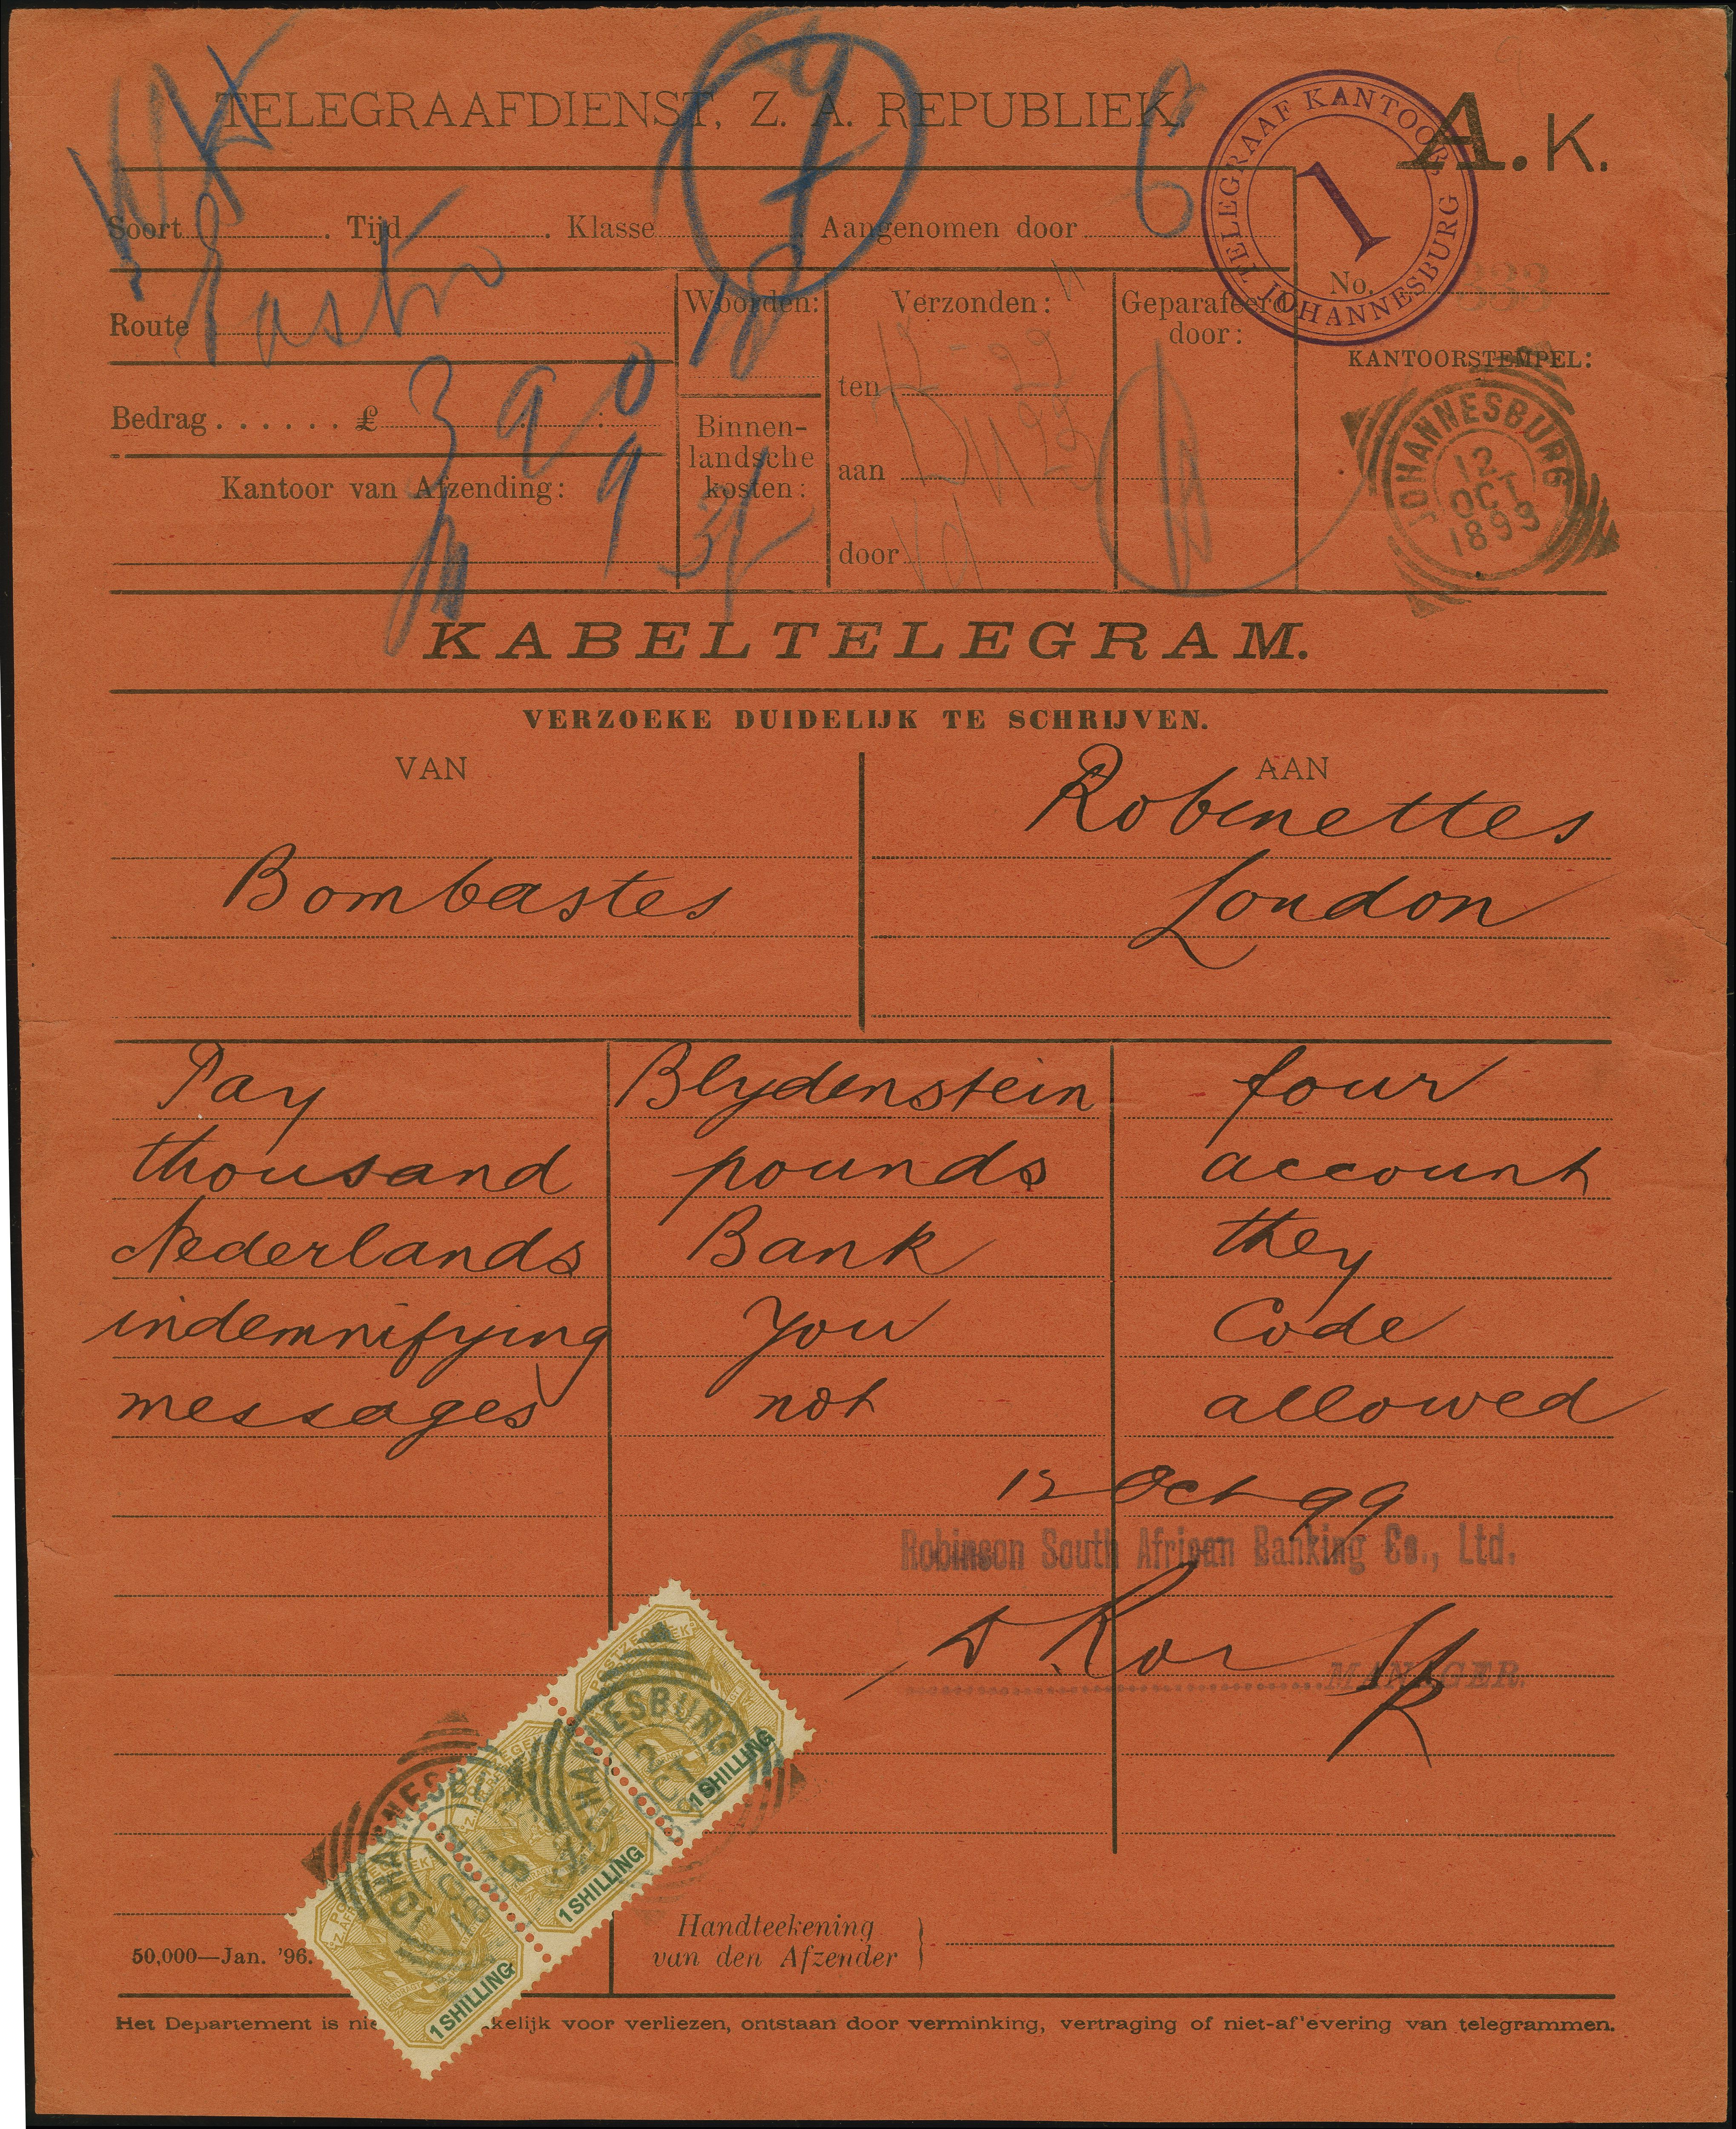 TELEGRAAFDIENST, Z. A. REPUBLIEK.
A. K.
TELEGRAAF KANTOOR JOHANNESBURG
1
Soort . Tijd . Klasse . Aangenomen door
6
Route
Eastn
Woorden:
18
Verzonden:
Geparafeerd door:
No.
KANTOORSTEMPEL:
JOHANNESBURG
12
OCT
1899
Bedrag ...... £ 3 9 0
Binnen-
landsche
kosten:
3/-
ten
aan
door
Kantoor van Afzending:
9
KABELTELEGRAM.
VERZOEKE DUIDELIJK TE SCHRIJVEN.
VAN AAN
Robinettes
Bombastes London
Pay Blydenstein four
thousand pounds account
Nederlands Bank they
indemnifying you Code
messages not allowed
12 Oct 99
Robinson South African Banking Co., Ltd.
MANAGER.
JOHANNESBURG
12
OCT
POSTZEGEL
1 SHILLING
1 SHILLING
1 SHILLING
Handteekening
van den Afzender
50,000—Jan. '96.
Het Departement is nie kelijk voor verliezen, ontstaan door verminking, vertraging of niet-af'evering van telegrammen.